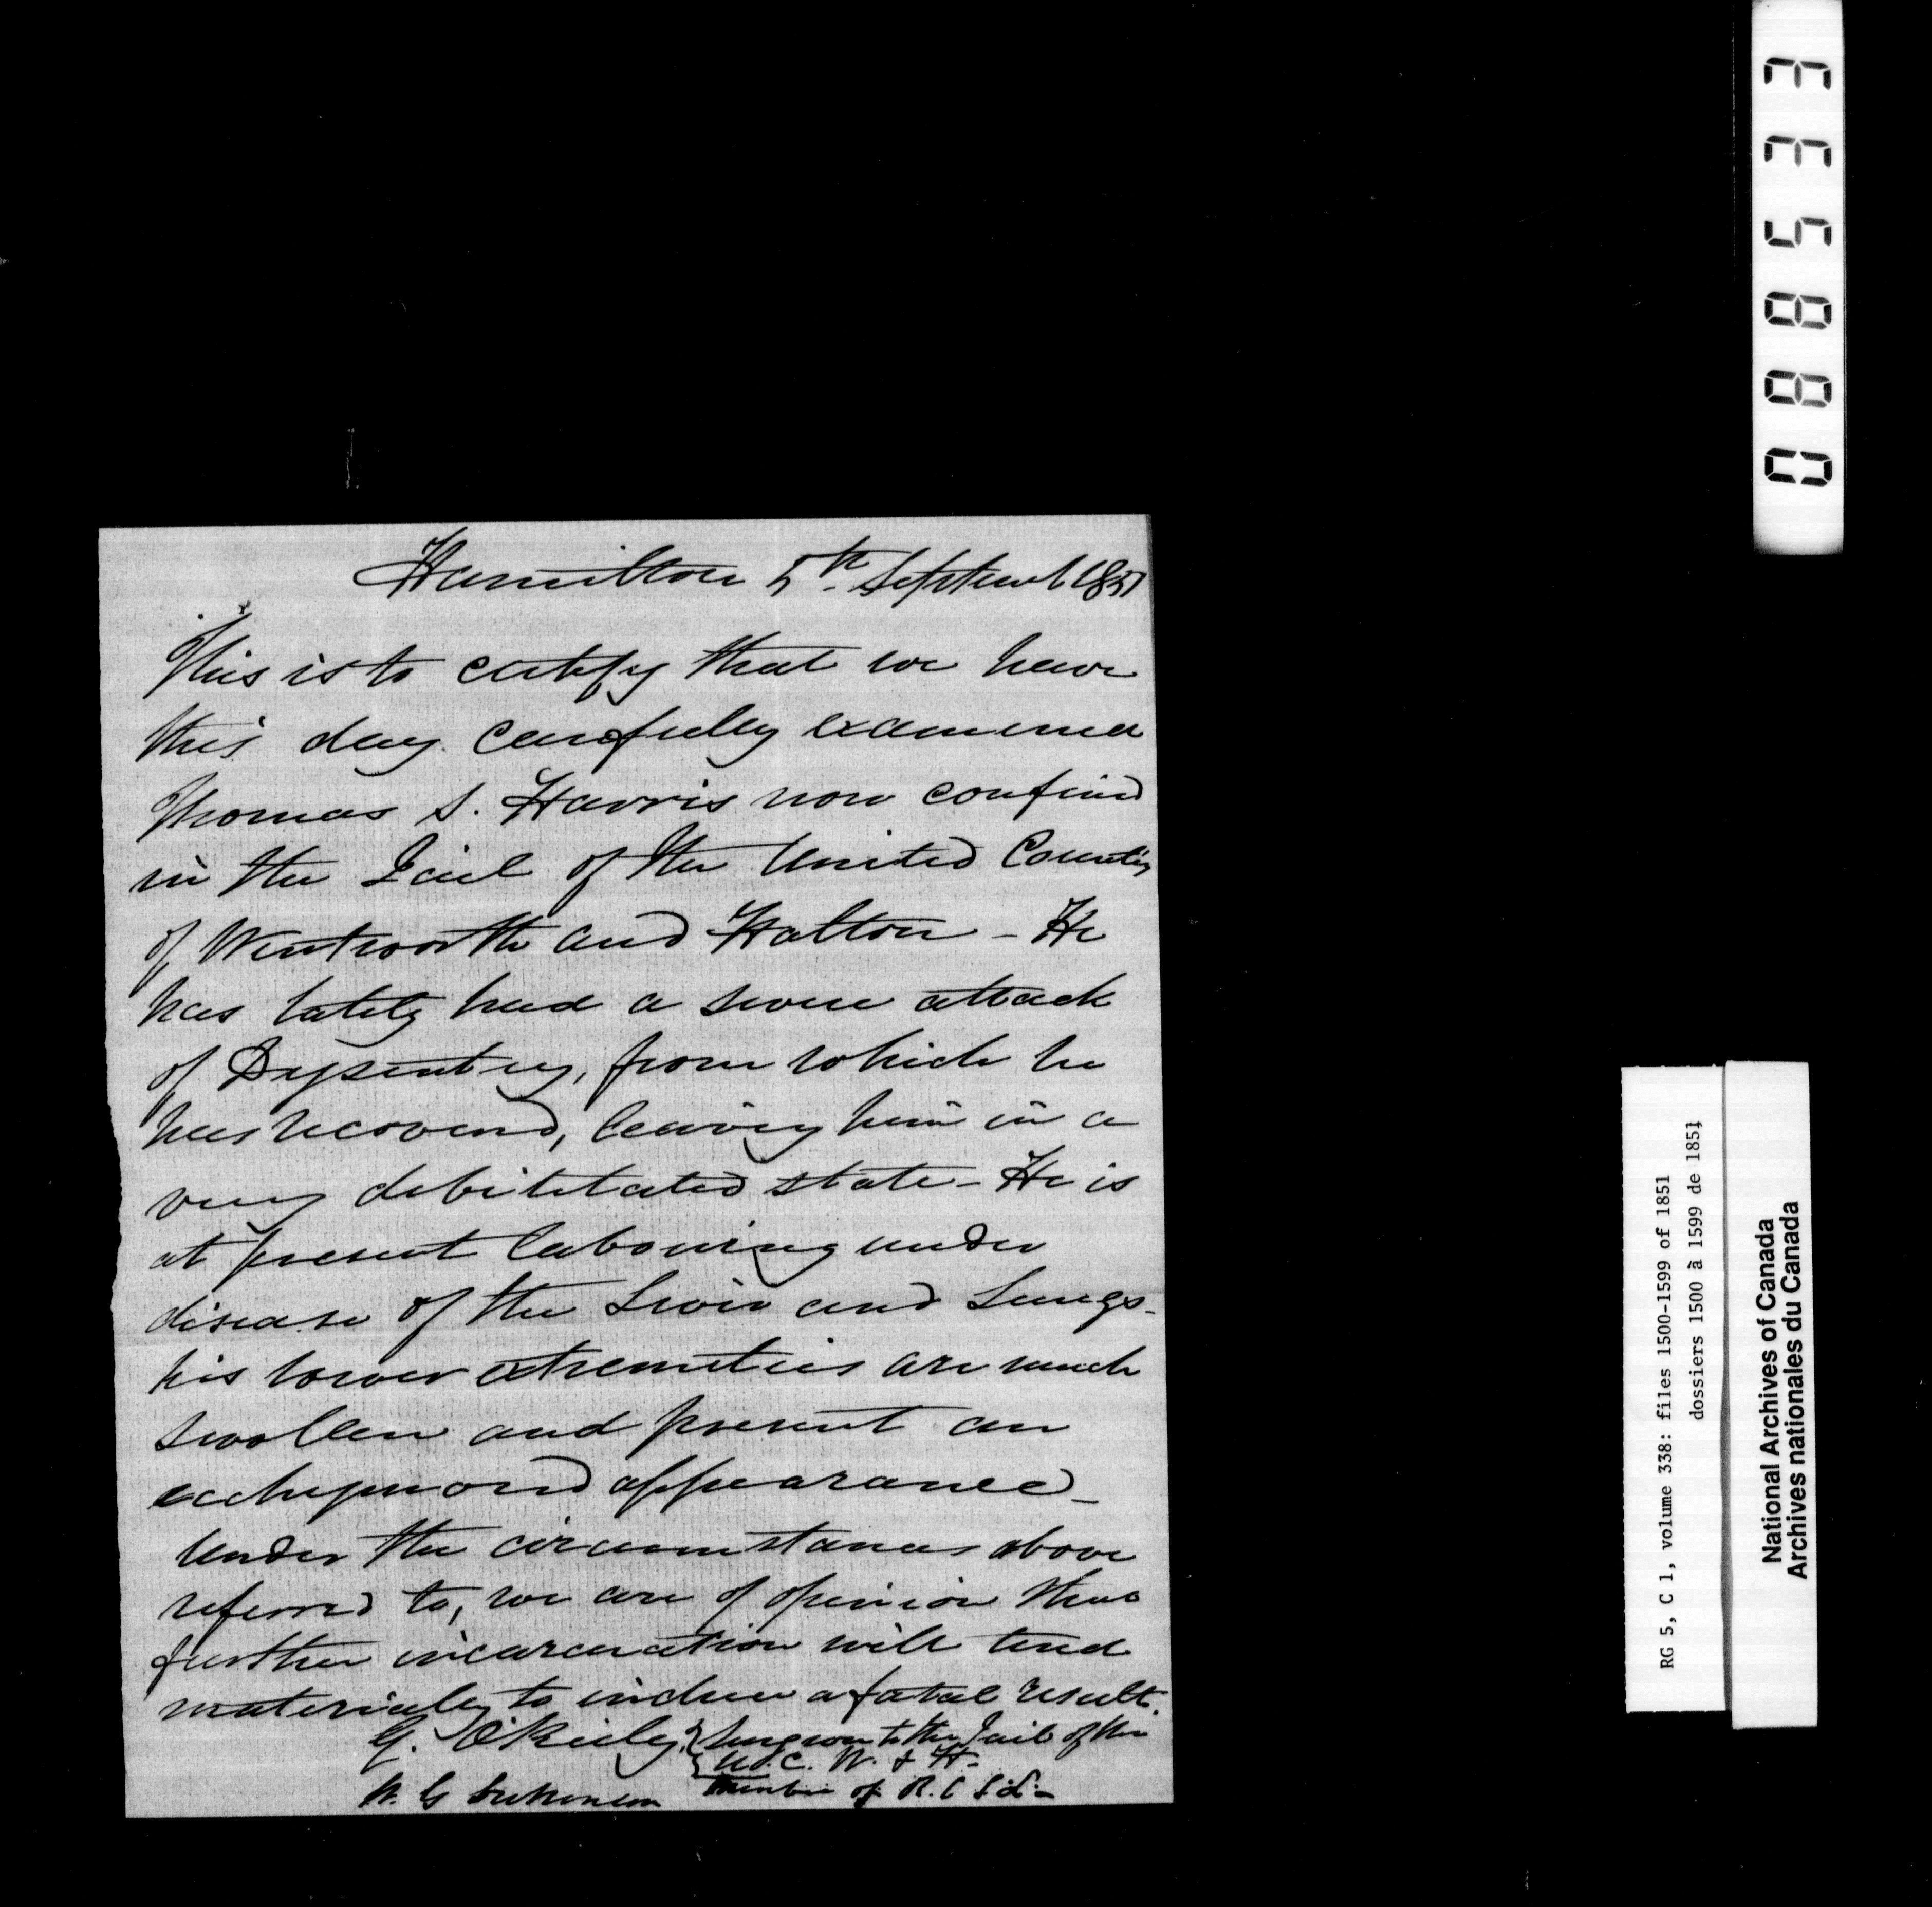 Hamilton 5th Septemb 1851
This is to certify that we have
this day carefully examined
Thomas S. Harris now confined
in the Jail of the United Counties
of Wentworth and Halton - He
has lately had a severe attack
of Dysentery, from which he
has recovered, leaving him in a
very debilitated state - He is
at present labouring under
disease of the Liver and Lungs -
his lower extremities are much
swollen and present an
ecchymosed appearance -
Under the circumstances above
referred to, we are of opinion that
further incarceration will tend
materially to induce a fatal result.
G. O'Reily, Surgeon to the Jail of the
U. C. W. & H.
W. G. Dickenson Member of R. C. S. L. -
088533
RG 5, C 1, volume 338: files 1500-1599 of 1851
dossiers 1500 à 1599 de 1851
National Archives of Canada
Archives nationales du Canada